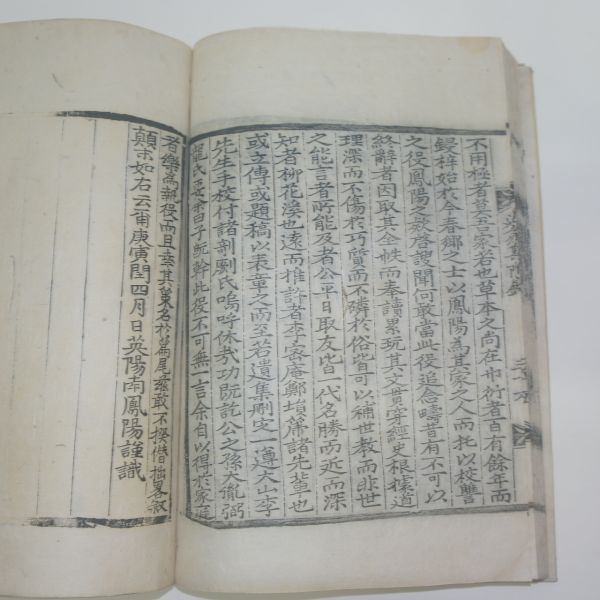 不用極者其吾家若也草本之尚在巾衍者百有餘年而
鋟梓始於今春鄉之士以鳳陽為其家之人而托以校讐
之役鳳陽之款啓謏聞何敢當此役追念疇昔有不可以
終辭者因取其全帙而奉讀累玩其文貫穿經史根據道
理深而不傷於巧質而不磷於俗皆可以補世敎而非世
之能言者所能及者公平日取友皆一代名勝而近而深
知者柳花溪也遠而推許者李密庵鄭塤篪諸先輩也
或立傳或題稿以表章之而至若遺集刪定一遵大山李
先生手校付諸剞劂氏嗚呼休哉功旣訖公之孫大胤弼
寵氏要余曰子旣幹此役不可無一言余自以得於家庭
者樂爲執役而且幸其菓名於篇尾玆敢不揆僭拙畧叙
顚末如右云爾庚寅閏四月日英陽南鳳陽謹識